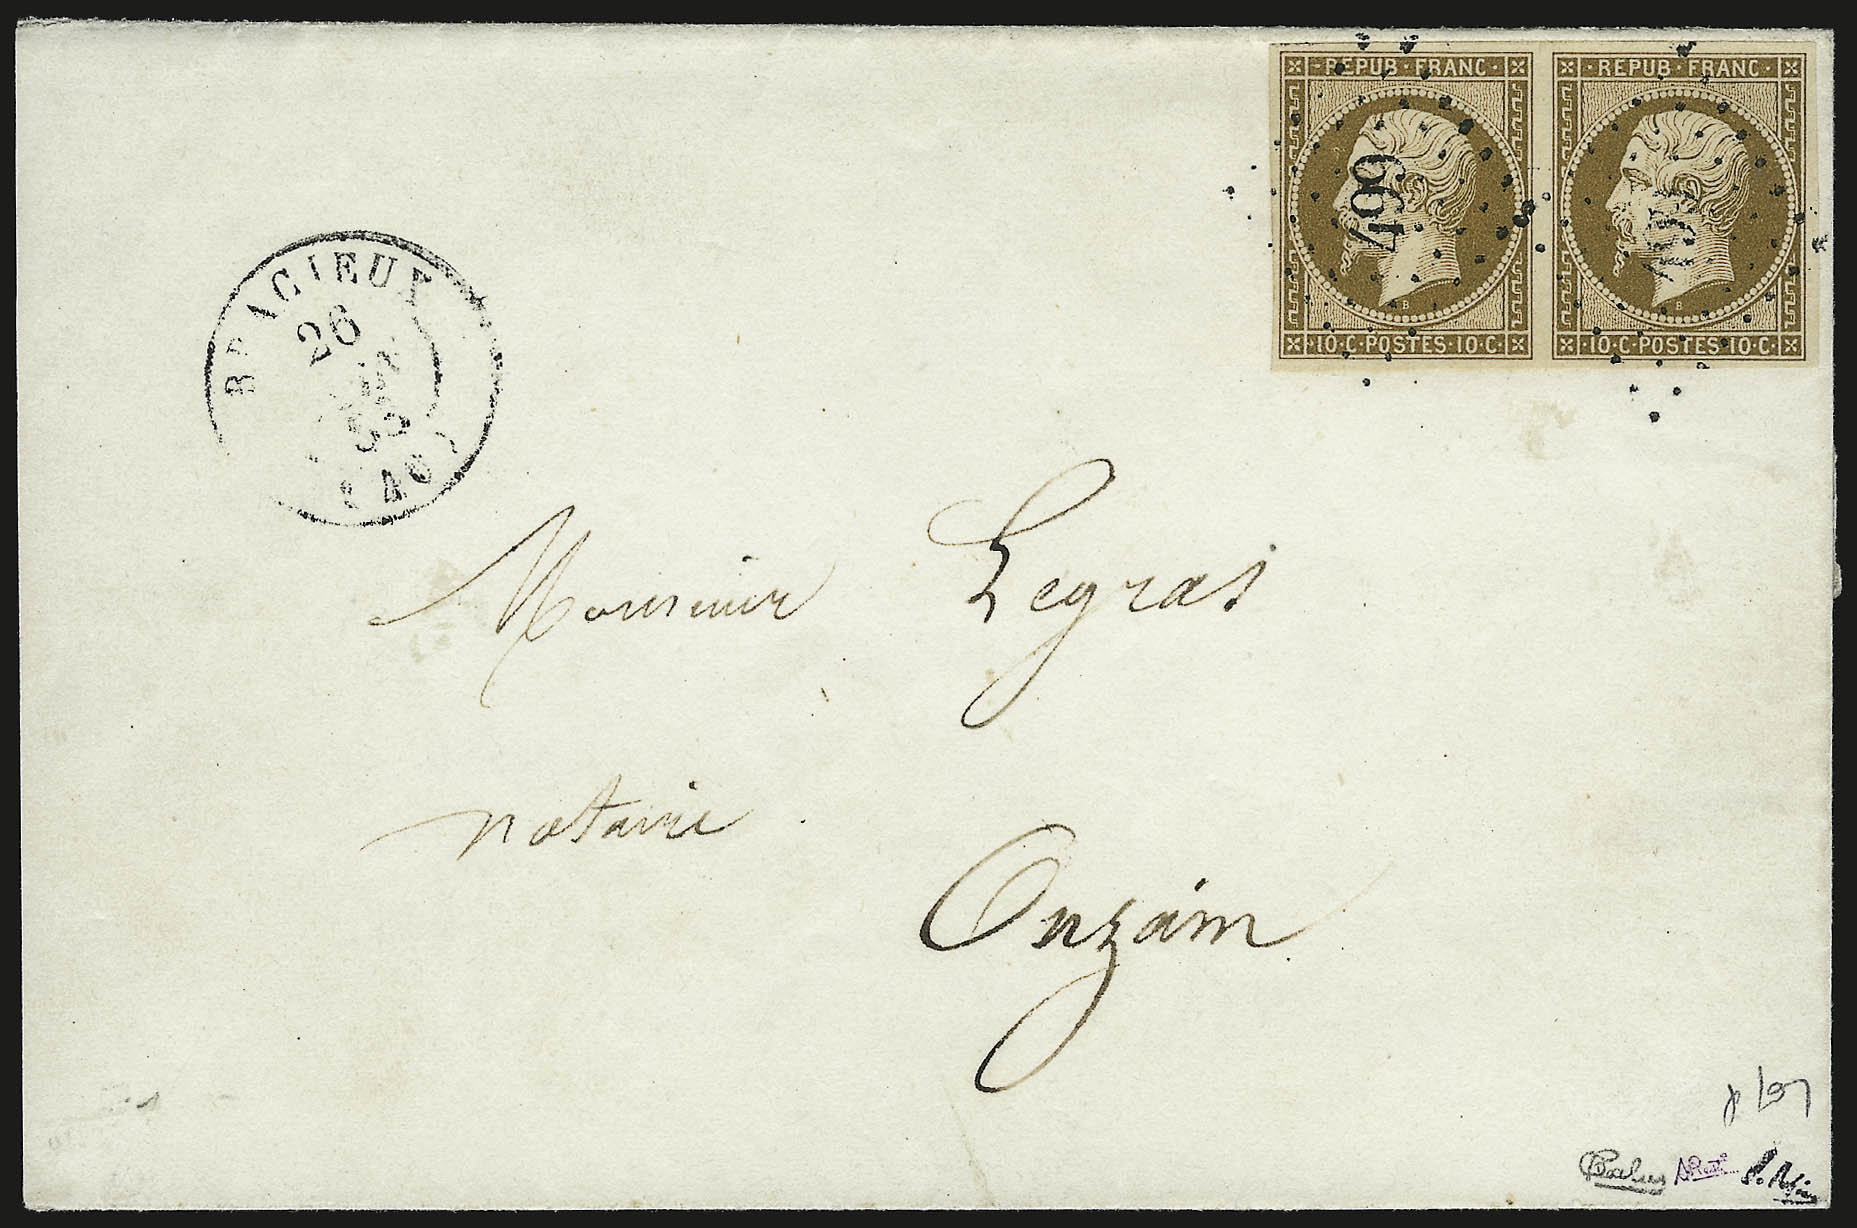 REPUB · FRANC · REPUB · FRANC ·
499
10 · C · POSTES · 10 · C · 10 · C · POSTES · 10 · C ·
B
B
BRACIEUX
26
53
(40)
Monsieur Legras
notaire
Onzain
Calves